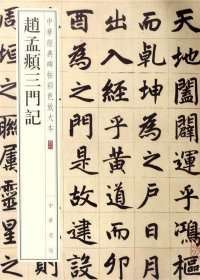 中華經典碑帖彩色放大本
趙孟頫三門記
中華書局
天地闔闢運乎鴻樞
而乾坤為之戶日月
出入經乎黃道而卯
酉為之門是故建設